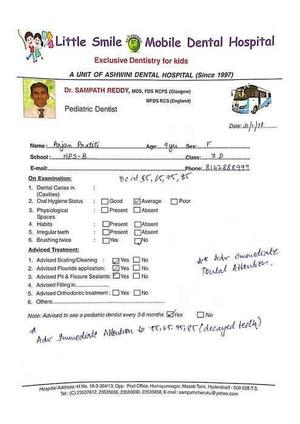 Little Smile Mobile Dental Hospital
Exclusive Dentistry for kids
A UNIT OF ASHWINI DENTAL HOSPITAL (Since 1997)
Dr. SAMPATH REDDY, MDS, FDS RCPS (Glasgow)
MFDS RCS (England)
Pediatric Dentist
Date:
Name: Age: 9yrs Sex: F
School: HPS-B Class: 3 D
E-mail: Phone: 8142888999
On Examination: 55, 65, 75, 85
1. Dental Caries in (Cavities)
2. Oral Hygiene Status : Good Average Poor
3. Physiological Spaces : Present Absent
4. Habits : Present Absent
5. Irregular teeth : Present Absent
6. Brushing twice : Yes No
Adviced Treatment:
1. Advised Scaling/Cleaning : Yes No
2. Advised Flouride application : Yes No
3. Advised Pit & Fissure Sealants : Yes No
4. Advised Filling in
5. Advised Orthodontic treatment : Yes No
6. Others:
** Adv immediate
Dental Attention.
Note: Advised to see a pediatric dentist every 3-6 months Yes No
* Adv Immediate Attention to 55, 65, 75, 85 (decayed teeth)
Hospital Address: H.No. 10-3-304/13, Opp: Post Office, Humayunnagar, Masab Tank, Hyderabad - 500 028 T.S.
Tel: (C) 23537612, 23535656, E-mail: sampathcheruku@yahoo.com